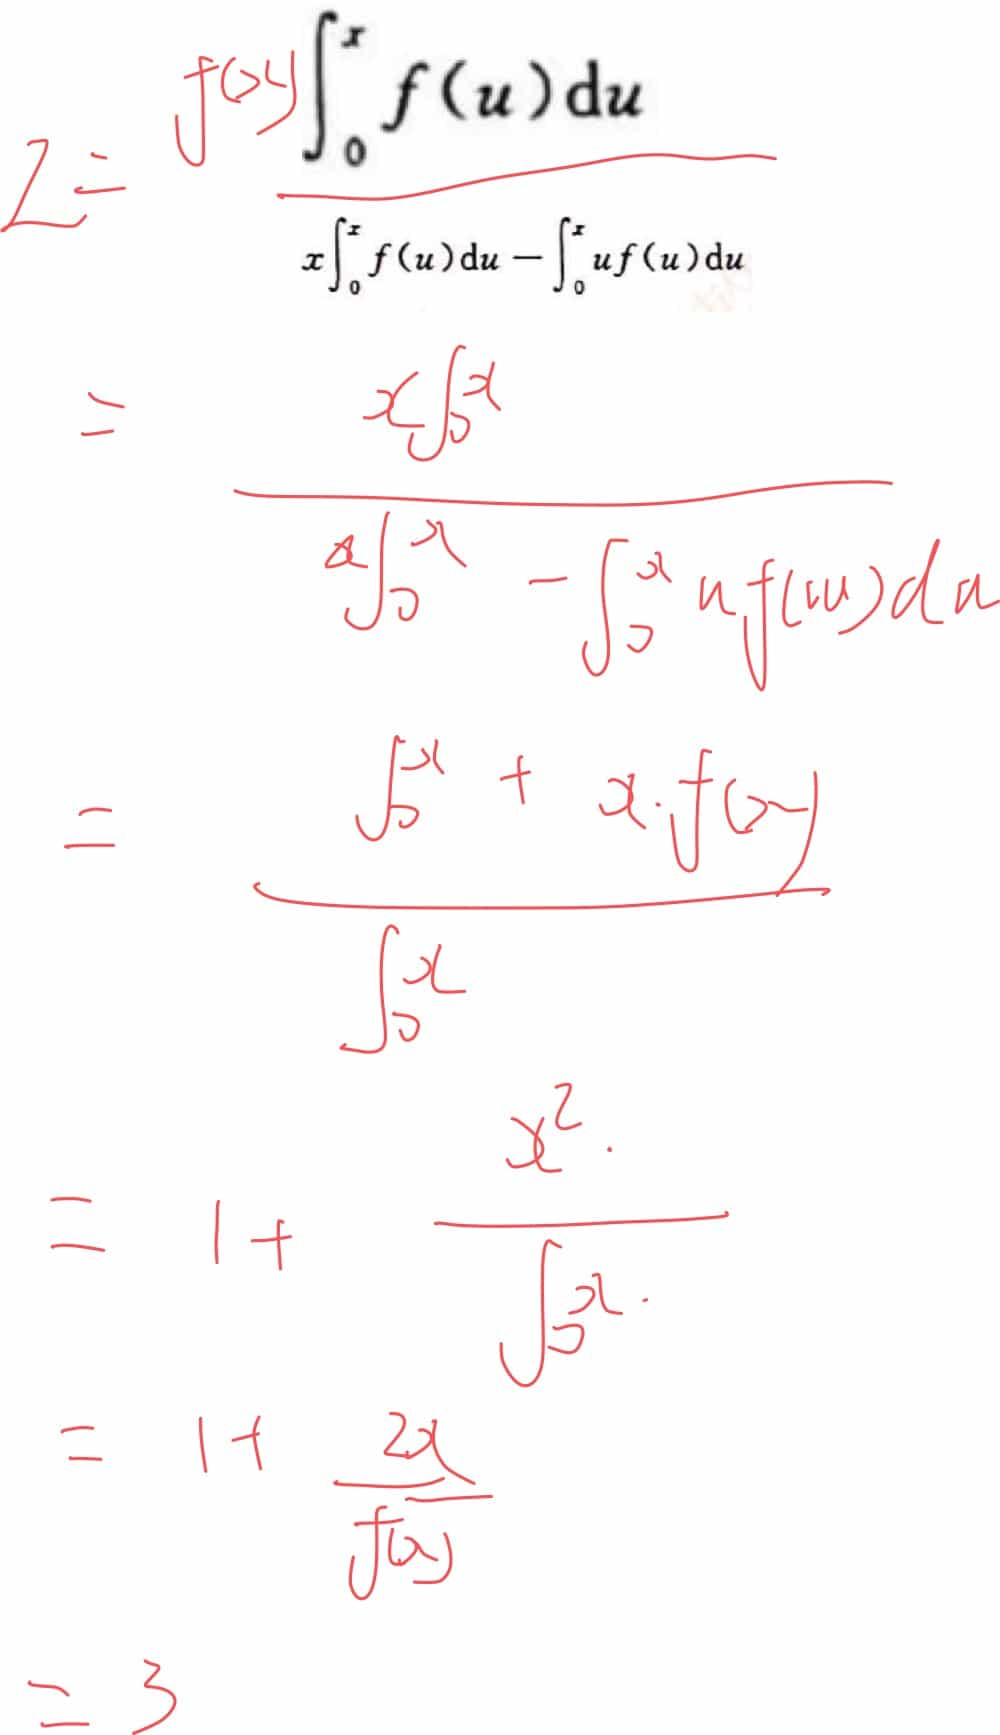 I = f(x)∫₀ˣ f(u)du
x∫₀ˣ f(u)du − ∫₀ˣ uf(u)du
= x∫₀ˣ
x∫₀ˣ − ∫₀ˣ uf(u)du
= ∫₀ˣ + x·f(x)
∫₀ˣ
= 1+ x².
∫₀ˣ.
= 1+ 2x
f(x)
= 3